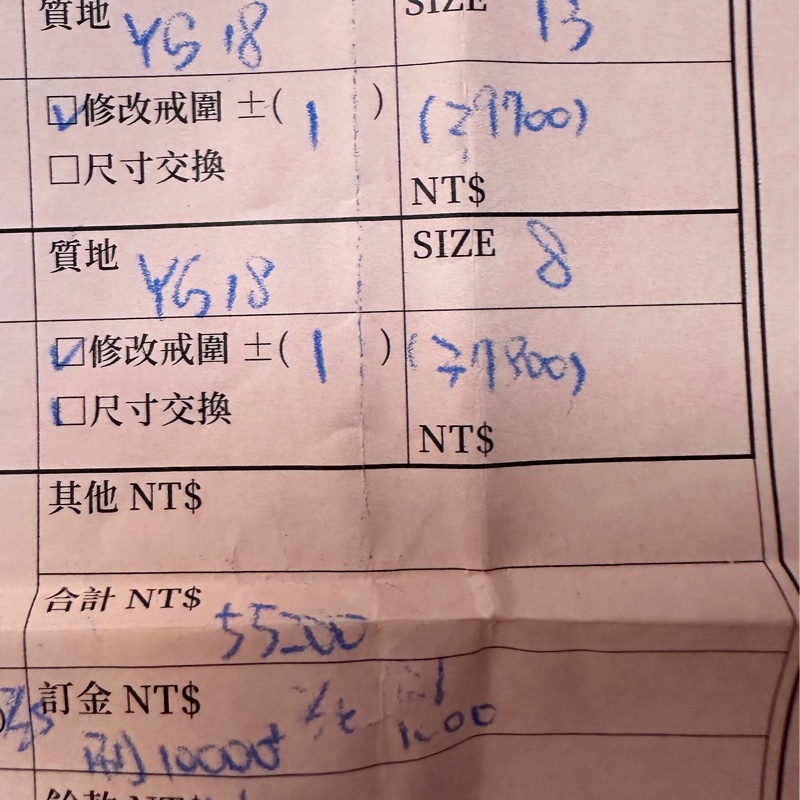 質地 YG 18 SIZE 13
☑修改戒圍 ±( 1 ) (29700)
□尺寸交換 NT$
質地 YG 18 SIZE 8
☑修改戒圍 ±( 1 )
□尺寸交換 NT$
其他 NT$
合計 NT$ 55200
訂金 NT$
刷10000 1000